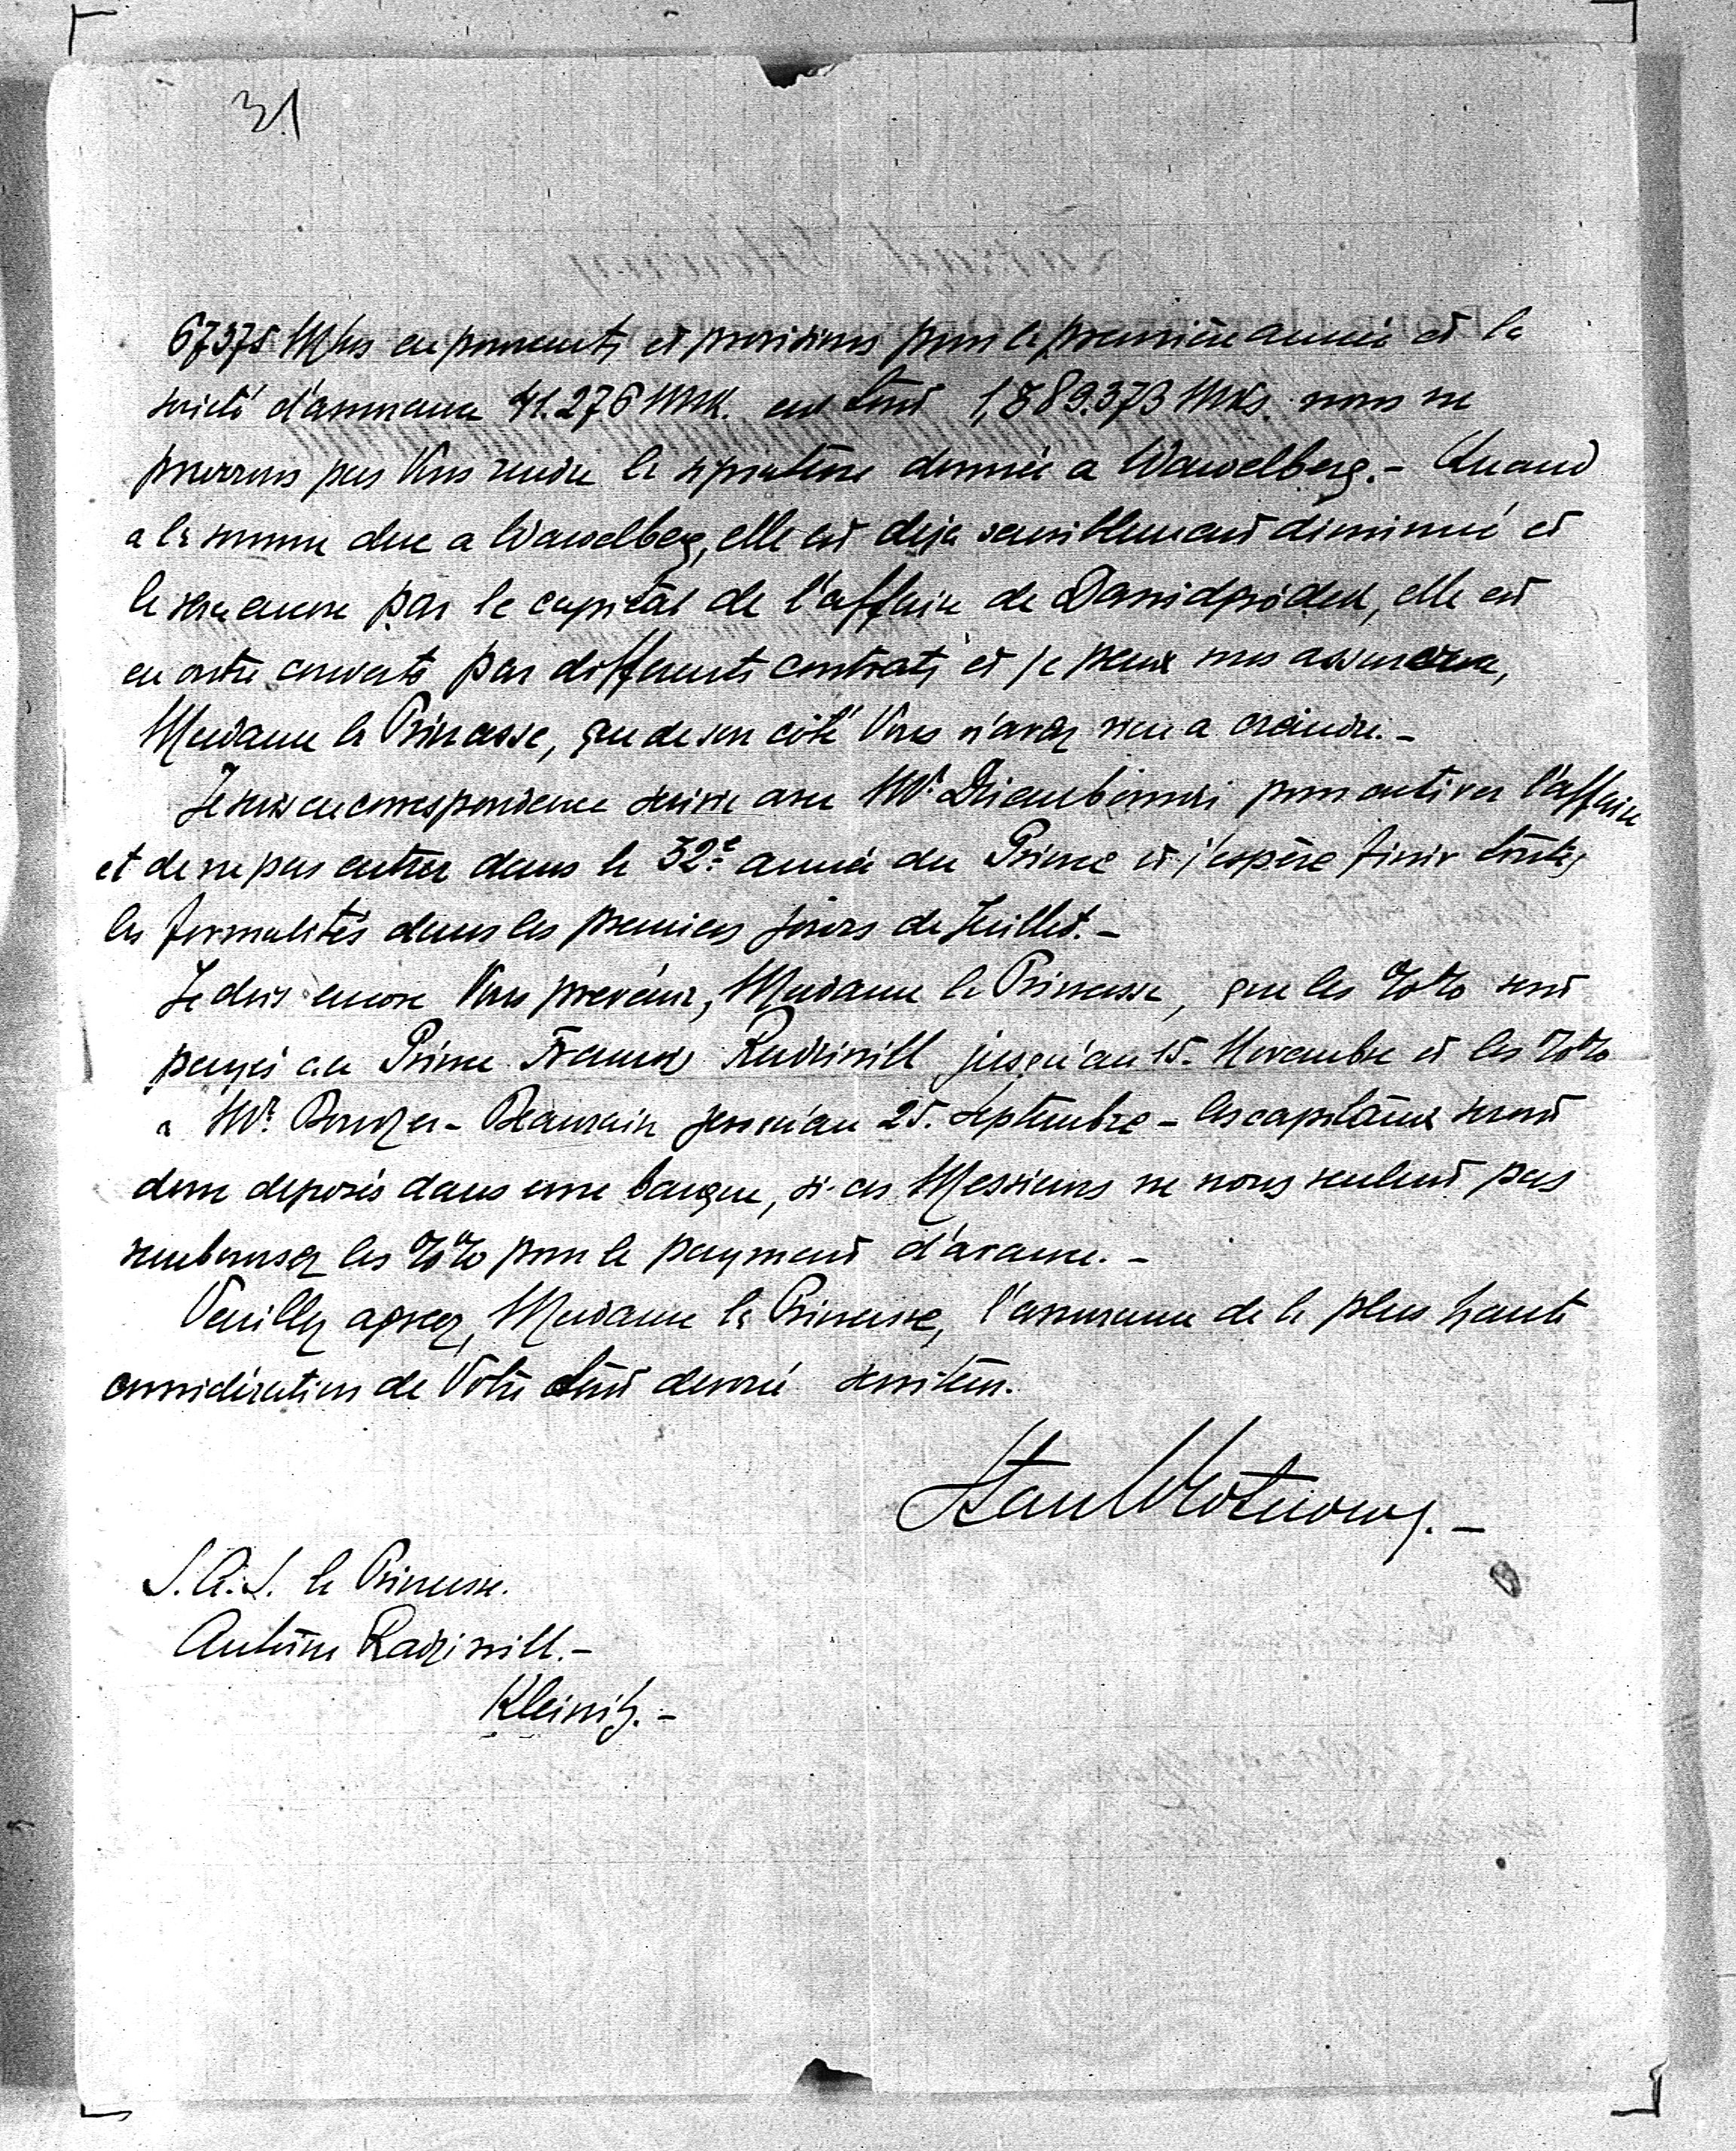 31
67375 Mks en payements et provisions pour la première année et la
société d'assurance 41.276 Mrk. en tout 1,889.373 Mks. nous ne
pourrons pas Vous rendre la signature donnée a Wawelberg. - Quand
a la somme due a Wawelberg, elle est deja sensiblement diminué et
le sera encore par le capital de l'affaire de Davidgródek, elle est
en outre couverte par differents contrats et je peux
Madame la Princesse, que de son côté Vous n'avez rien a craindre. -
Je suis en correspondence suivie avec Mr. pour activer l'affaire
et de ne pas entrer dans la 32e année du Prince et j'espère finir toutes
les formalités dans les premiers jours de Juillet. -
Je dois encore Vous prevenir, Madame la Princesse, que les %% sont
payés au Prince François Radziwill jusqu'au 15. Novembre et les %%
a Mr. jusqu'au 25. Septembre - les capitaux seront
donc deposés dans une banque, si ces Messieurs ne nous veulent pas
rembourser les %% pour le payment d'avance. -
Veuillez agreer, Madame la Princesse, l'assurance de la plus haute
considération de Votre tout devoué serviteur.
S.A.S. la Princesse.
Antoine Radziwill. -
Kleinitz. -